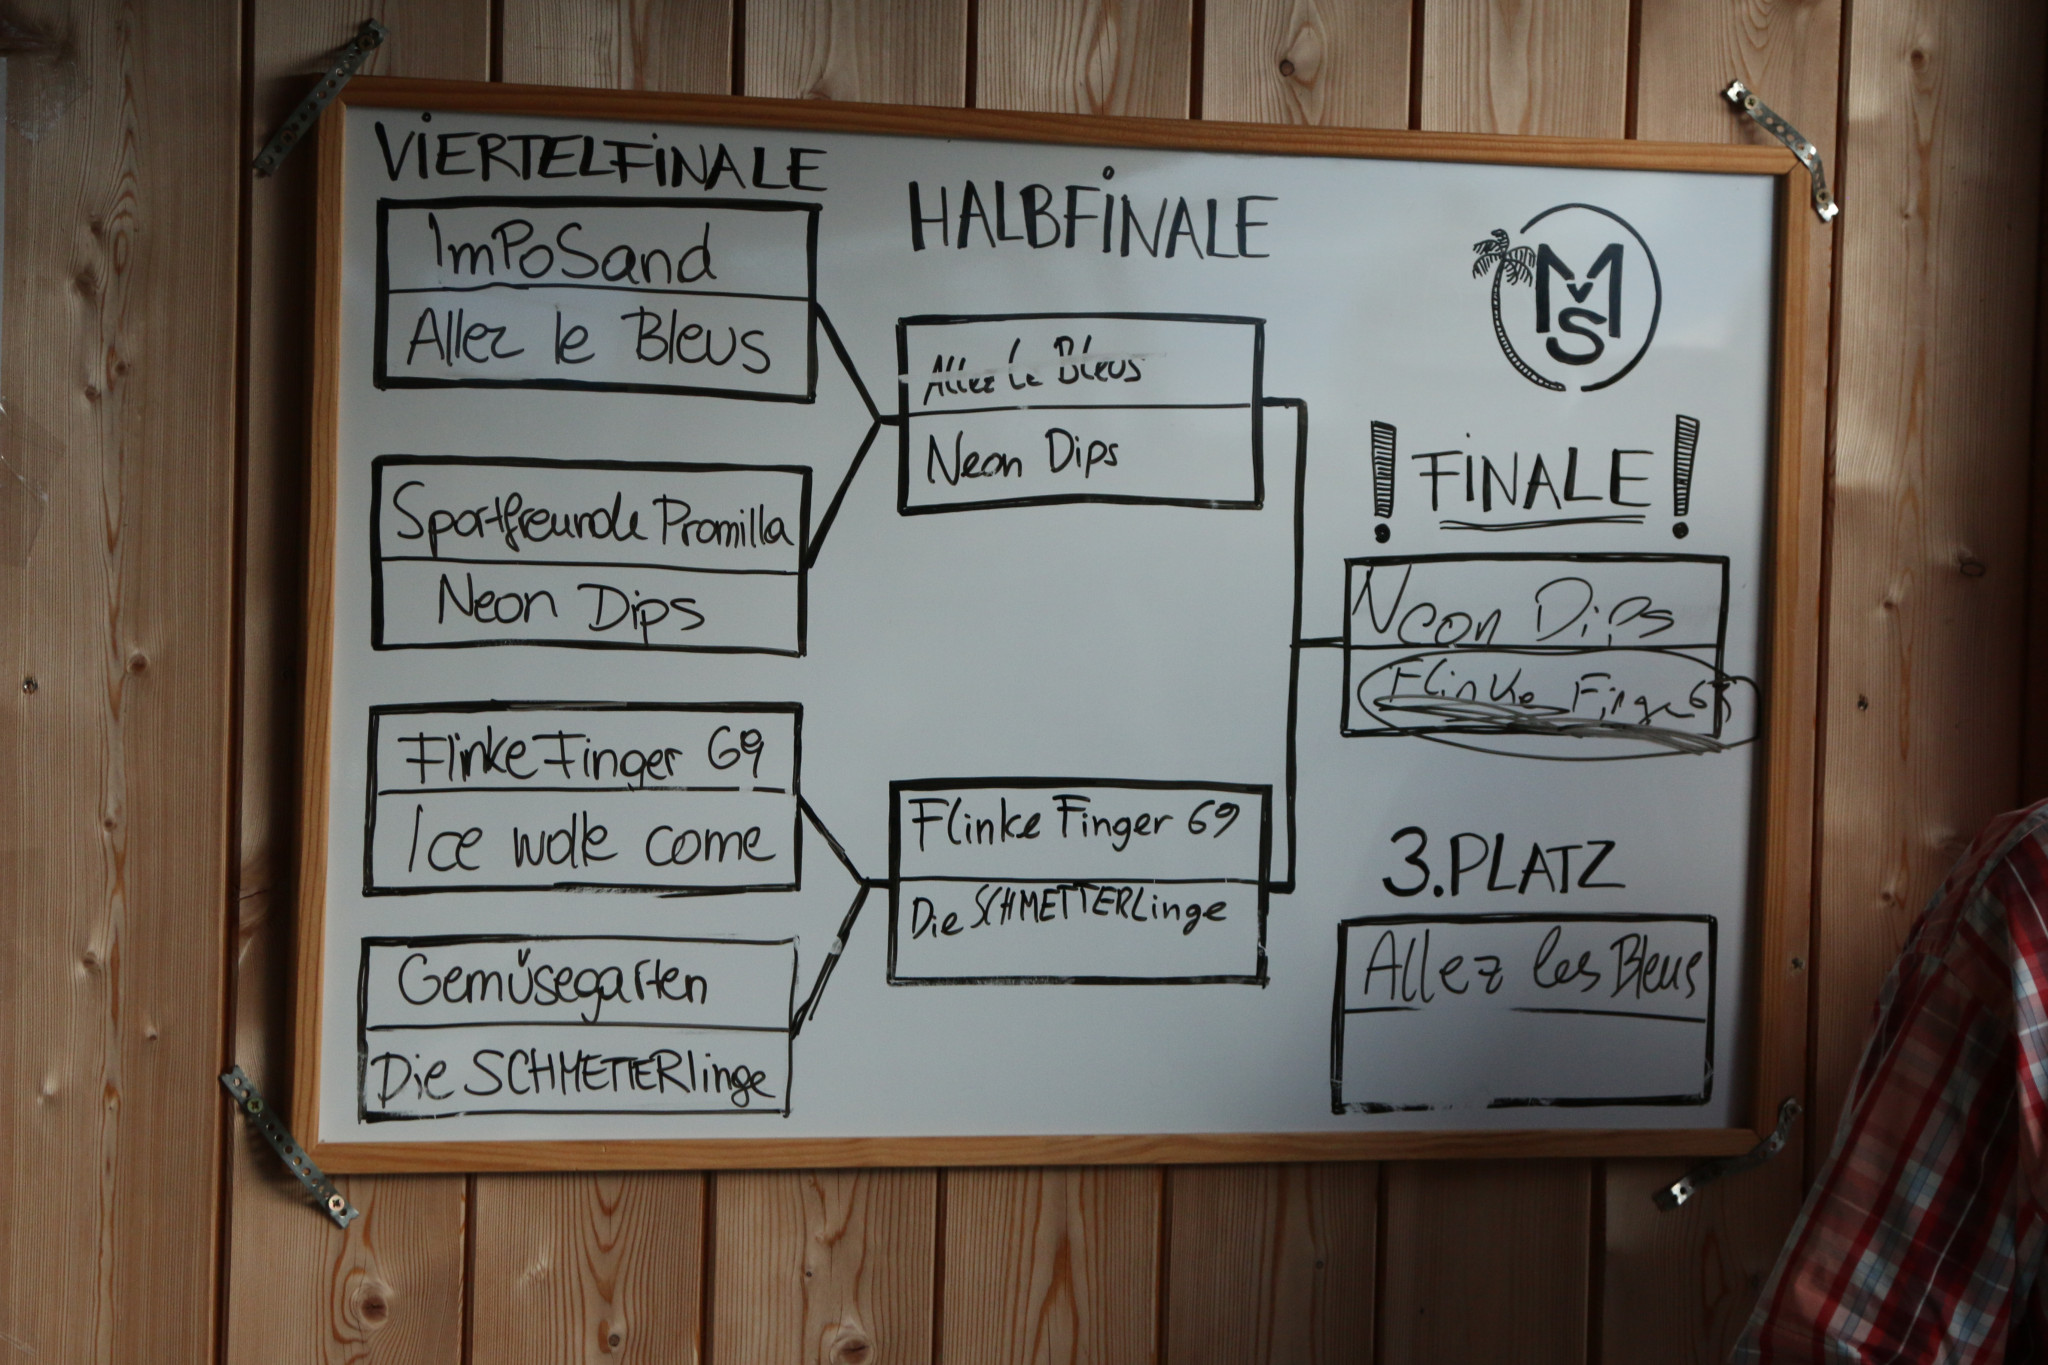 VIERTELFINALE
ImPoSand
Allez le Bleus
Sportfreunde Promilla
Neon Dips
Flinke Finger 69
Ice wolle come
Gemüsegarten
Die SCHMETTERlinge
HALBFINALE
Allez le Bleus
Neon Dips
Flinke Finger 69
Die SCHMETTERLinge
MvS
! FINALE !
Neon Dips
Flinke Finger 69
3. PLATZ
Allez les Bleus